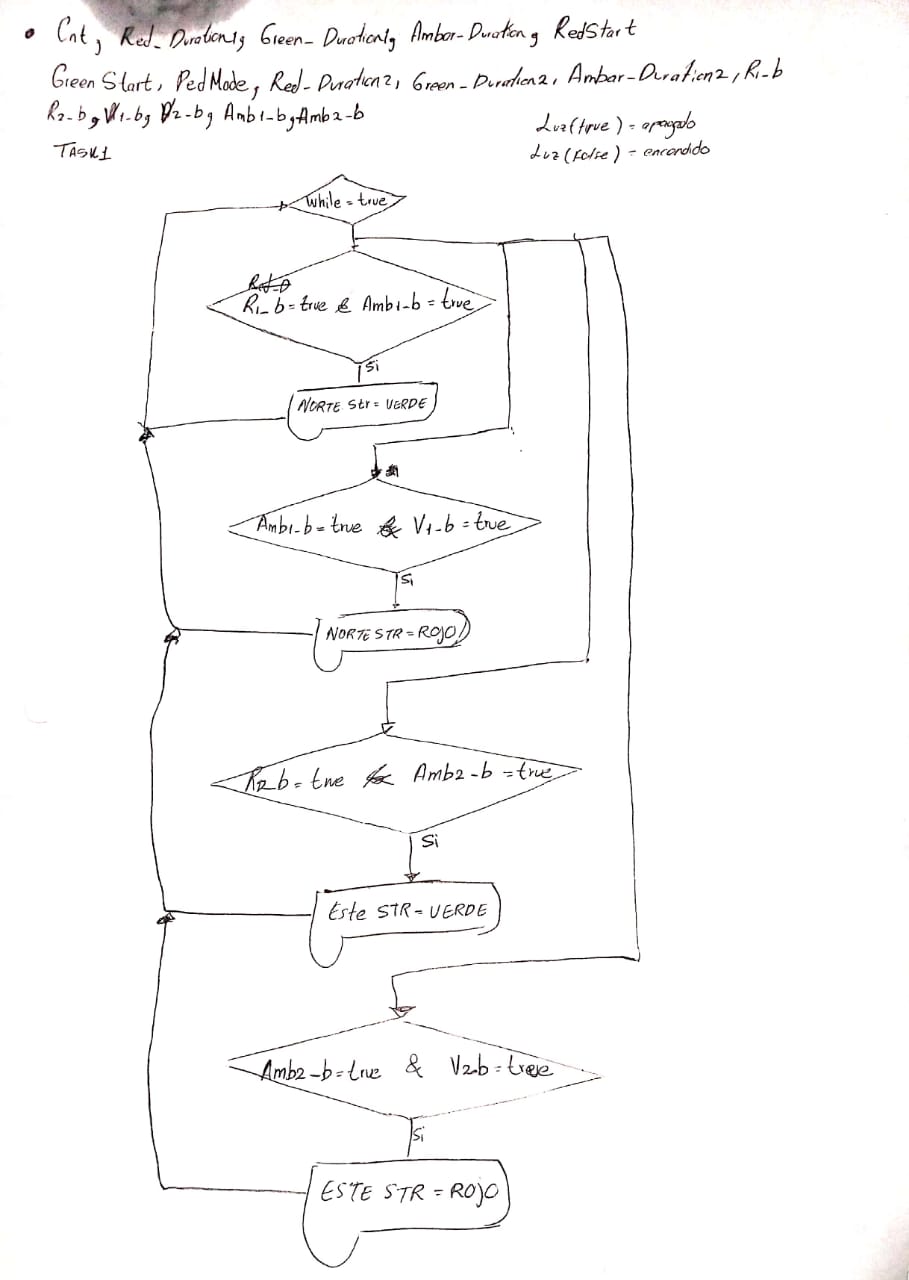 • Cnt, Red_Duration1, Green_Duration1, Ambar-Duration, RedStart
Green Start, PedMode, Red-Duration2, Green-Duration2, Ambar-Duration2, R1-b
R2-b, V1-b, V2-b, Amb1-b, Amb2-b
Luz(true) = apagado
Luz(False) = encendido
TASK1
While = true
R1_b = true & Amb1-b = true
Si
NORTE Str = VERDE
Amb1-b = true & V1-b = true
Si
NORTE STR = ROJO
R2b = true & Amb2-b = true
Si
Este STR = VERDE
Amb2-b = true & V2-b = true
Si
ESTE STR = ROJO